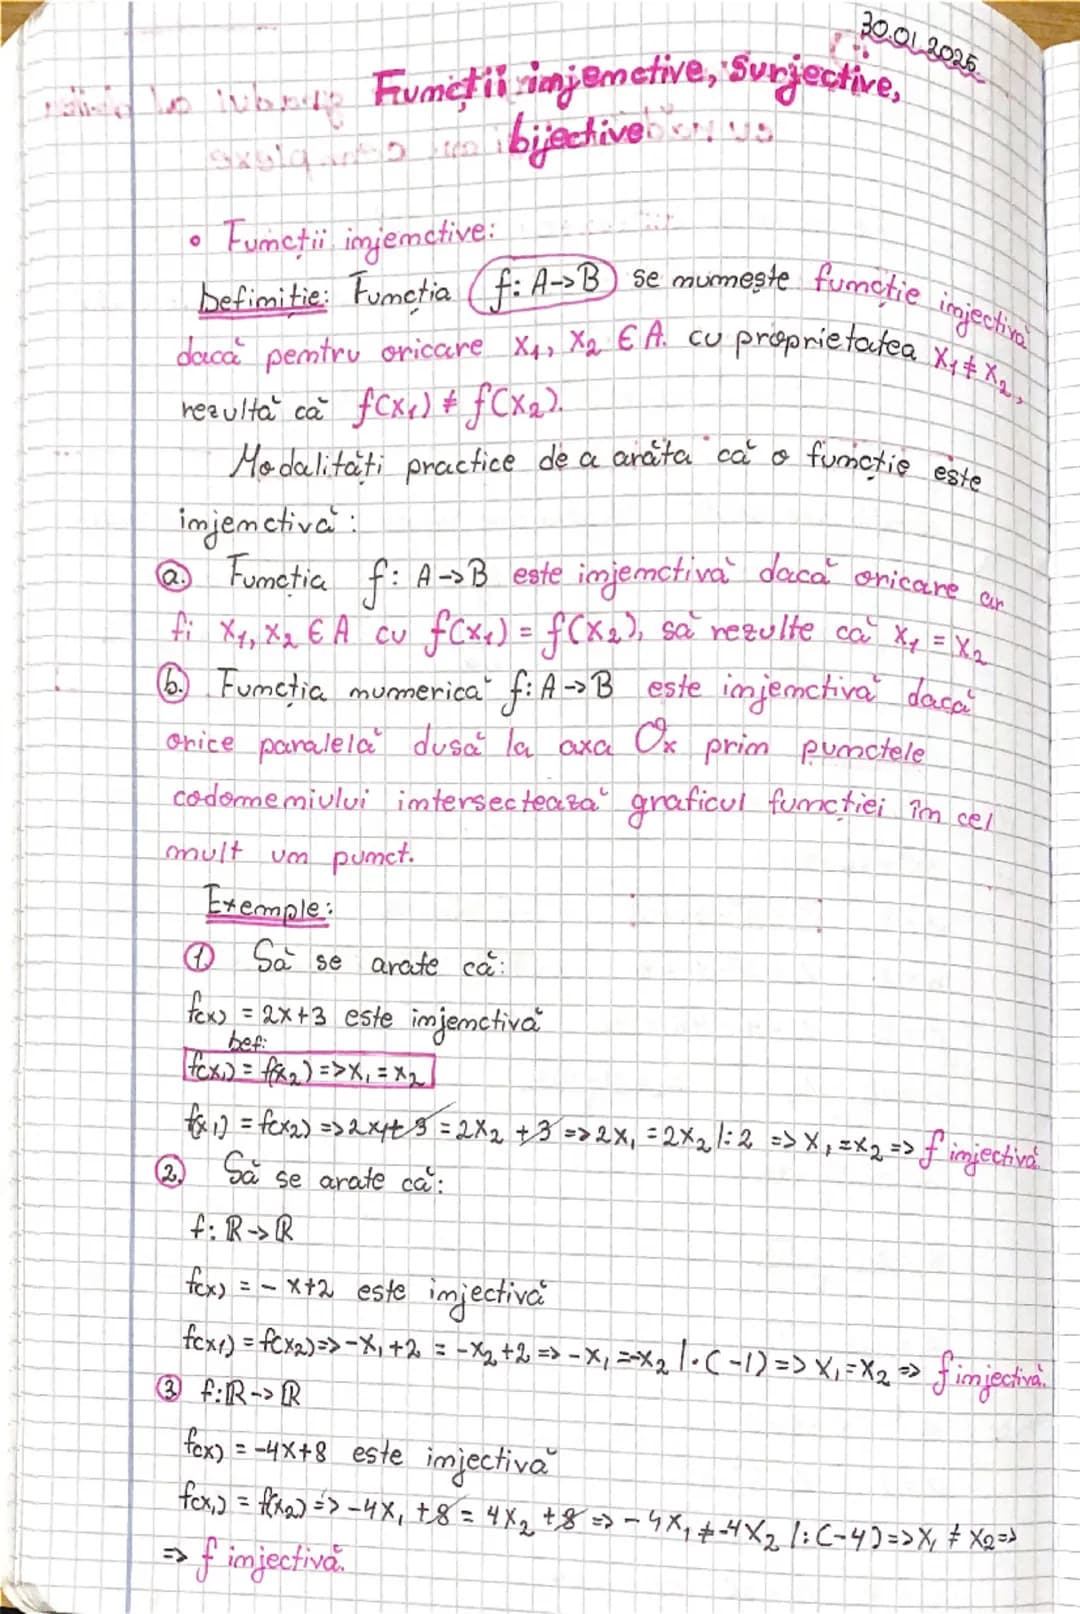 30.01.2025
Fumcții imjemctive, Surjective,
bijective
• Fumcții imjemctive:
Defimiție: Fumcția f: A->B se mumește fumcție imjectivă
dacă pemtru oricare x₁, x₂ ∈ A. cu proprietatea x₁ ≠ x₂,
rezultă că f(x₁) ≠ f(x₂).
Modalități practice de a arăta că o fumcție este
imjemctivă:
a. Fumcția f: A->B este imjemctivă dacă oricare ar
fi x₁, x₂ ∈ A cu f(x₁) = f(x₂), să rezulte că x₁ = x₂
b. Fumcția mumerică f: A->B este imjemctivă dacă
orice paralelă dusă la axa Ox prim pumctele
codomemiului imtersectează graficul fumcției îm cel
mult um pumct.
Exemple:
1. Să se arate că:
f(x) = 2x+3 este imjemctivă
Def:
f(x₁) = f(x₂) => x₁ = x₂
f(x₁) = f(x₂) => 2x₁+3 = 2x₂ +3 => 2x₁ = 2x₂ |:2 => x₁ = x₂ => f imjectivă.
2. Să se arate că:
f: ℝ -> ℝ
f(x) = - x+2 este imjectivă
f(x₁) = f(x₂) => -x₁ +2 = -x₂ +2 => -x₁ = -x₂ |·(-1) => x₁ = x₂ => f imjectivă.
3 f: ℝ -> ℝ
f(x) = -4x+8 este imjectivă
f(x₁) = f(x₂) => -4x₁ +8 = 4x₂ +8 => -4x₁ ≠ -4x₂ |:(-4) => x₁ ≠ x₂ =>
=> f imjectivă.